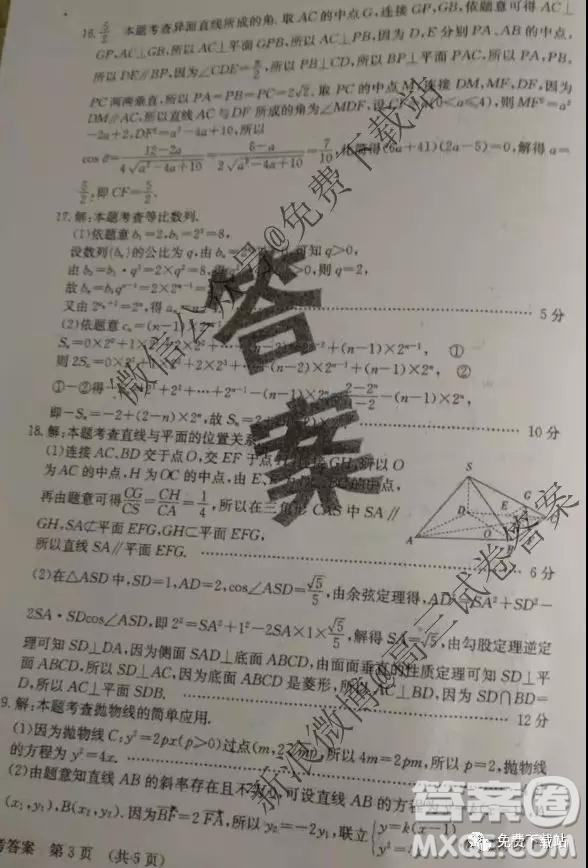 16. 5/2 本题考查异面直线所成的角. 取AC的中点G,连接GP,GB,依题意可得AC⊥
GP,AC⊥GB,所以AC⊥平面GPB,所以AC⊥PB,因为D,E分别PA,AB的中点,
所以DE∥BP,因为∠CDE=π/2,所以PB⊥CD,所以BP⊥平面PAC,所以PA,PB,
PC两两垂直,所以PA=PB=PC=2√2. 取PC的中点M,连接DM,MF,DF,因为
DM∥AC,所以直线AC与DF所成的角为∠MDF,设 (0<a≤4),则MF²=a²
-2a+2,DF²=a²-4a+10,所以
cos θ=(12-2a)/(4√(a²-4a+10))=(6-a)/(2√(a²-4a+10))=7/10,化简得(6a+41)(2a-5)=0,解得a=
5/2,即CF=5/2.
17.解:本题考查等比数列.
(1)依题意b₁=2,b₃=2³=8,
设数列{bₙ}的公比为q,由bₙ= 可知q>0,
由b₃=b₁·q²=2×q²=8, >0,则q=2,
故bₙ=b₁qⁿ⁻¹=2×2ⁿ⁻¹
又由2 =2ⁿ,得a 5分
(2)依题意cₙ=(n-1)×2ⁿ⁻¹
Sₙ=0×2⁰+1×2 +(n-1)×2ⁿ⁻¹, ①
则2Sₙ=0×2¹+1×2²+2×2³+…+ +(n-1)×2ⁿ, ②
①-②得 2²+…+2ⁿ⁻¹-(n-1)×2ⁿ= (2-2ⁿ) -(n-1)×2ⁿ,
即-Sₙ=-2+(2-n)×2ⁿ,故Sₙ= 10分
18.解:本题考查直线与平面的位置关系
(1)连接AC,BD交于点O,交EF于点H,连接GH,所以O
为AC的中点,H为OC的中点,由E, 的中点,
再由题意可得CG/CS=CH/CA=1/4,所以在三角形CAS中SA∥
GH,SA⊄平面EFG,GH⊂平面EFG,
所以直线SA∥平面EFG. 6分
S
D
E
G
F
O
A
B
(2)在△ASD中,SD=1,AD=2,cos∠ASD=√5/5,由余弦定理得,AD²=SA²+SD²-
2SA·SDcos∠ASD,即2²=SA²+1²-2SA×1×√5/5,解得SA=√5,由勾股定理逆定
理可知SD⊥DA,因为侧面SAD⊥底面ABCD,由面面垂直的性质定理可知SD⊥平
面ABCD,所以SD⊥AC,因为底面ABCD是菱形,所以AC⊥BD,因为SD∩BD=
D,所以AC⊥平面SDB. 12分
9.解:本题考查抛物线的简单应用.
(1)因为抛物线C:y²=2px(p>0)过点(m,2√m),所以4m=2pm,所以p=2,抛物线
的方程为y²=4x.
(2)由题意知直线AB的斜率存在且不为0,可设直线AB的方程为
(x₁,y₁),B(x₂,y₂).因为BF=2FA,所以y₂=-2y₁,联立{y=k(x-1)
考答案 第3页 (共5页)
答案
微信公众号@免费下载站
新浪微博@高三试卷答案
答案圈
免费下载站